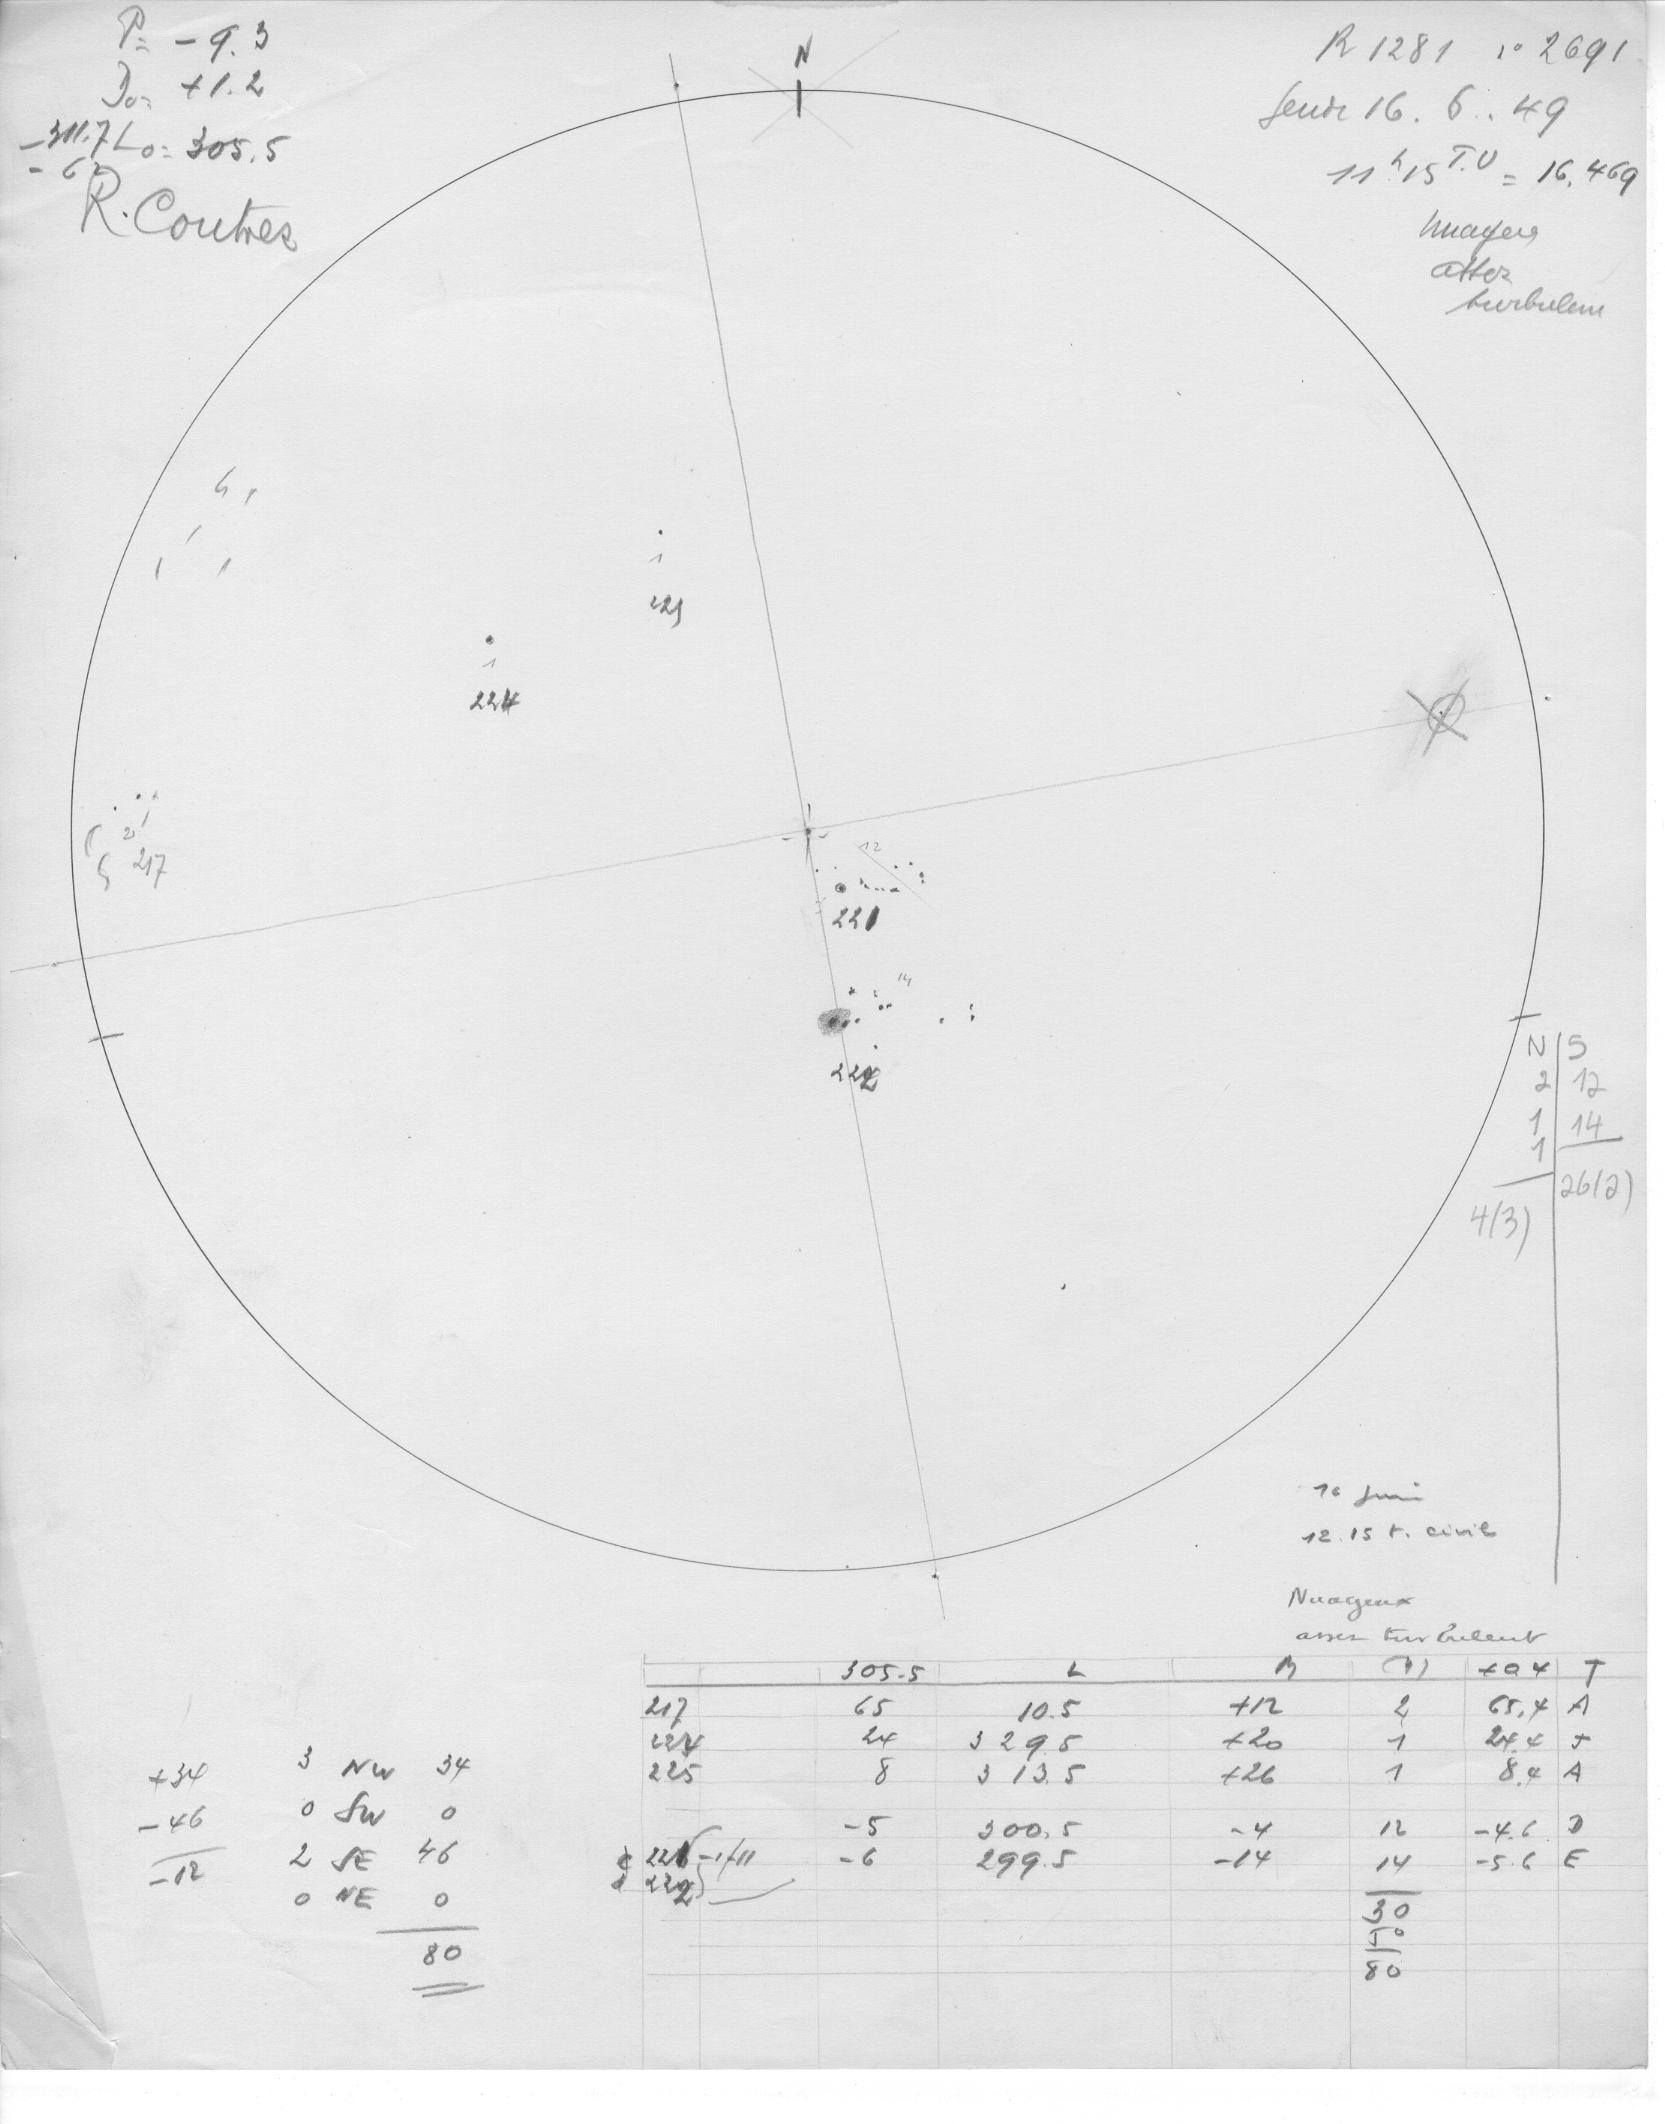 P= -9.3
Do= +1.2
-311.7 Lo= 305.5
R. Coutrez
N
R 1281 n° 2691
Jeudi 16. 6. 49
11h15 T.U = 16.469
Nuageux
assez
turbulent
1
225
1
224
2
217
12
221
14
222
N | S
2 | 12
1 | 14
1
26(2)
4(3)
16 Juin
12.15 t. civil
Nuageux
assez turbulent
305.5 L B +0.4 T
217 65 10.5 +12 2 65.4 A
224 24 329.5 +20 1 24.4 J
225 8 313.5 +26 1 8.4 A
-5 300.5 -4 12 -4.6 D
221 -6 299.5 -14 14 -5.6 E
222
30
50
80
+34 3 NW 34
-46 0 SW 0
-12 2 SE 46
0 NE 0
80